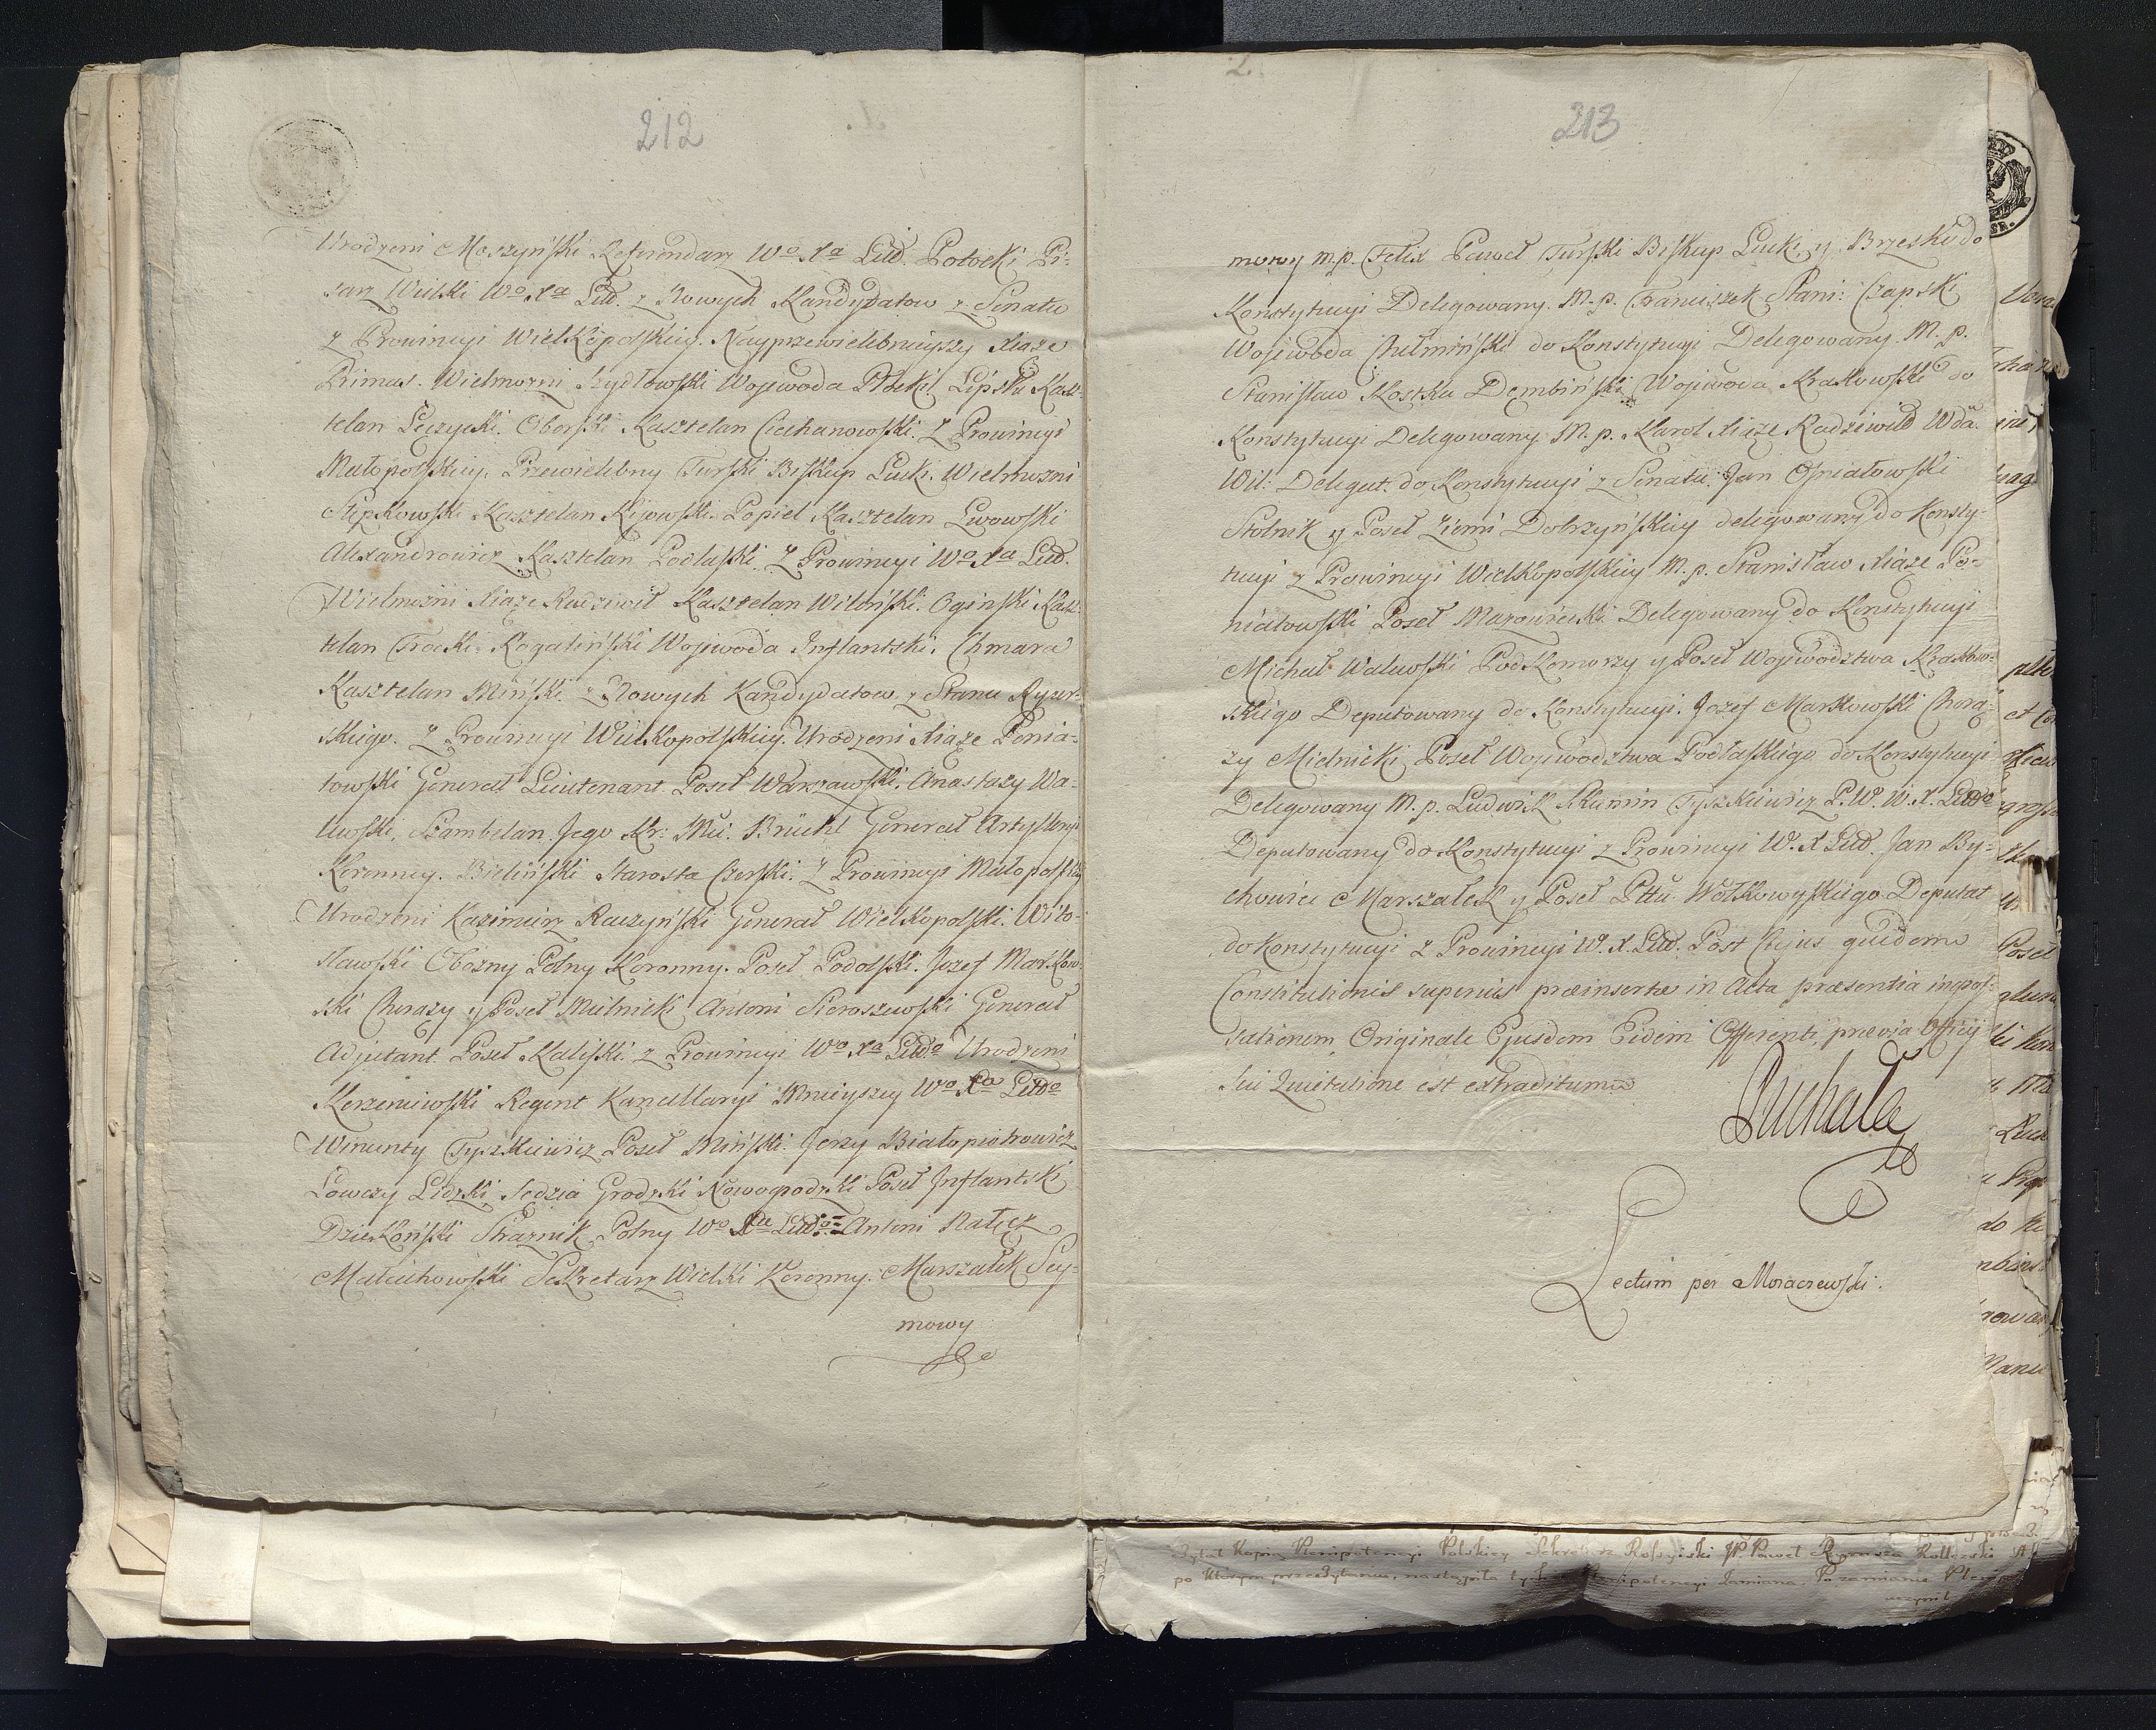 212
Urodzeni Moszyński Referendarz Wo Xa Litt. Potocki Pi-
sarz Wielki Wo Xa Litt. z Nowych Kandydatow z Senatu
z Prowincyi Wielkopolskiey. Nayprzewielebnieyszy Xiąże
Primas. Wielmożni Szydłowski Wojewoda Płocki. Lipski Kasz-
telan Łęczycki. Oborski Kasztelan Ciechanowski. Z Prowincyi
Małopolskiey. Przewielebny Turski Biskup Łucki. Wielmożni
Stępkowski Kasztelan Kijowski. Popiel Kasztelan Lwowski
Alexandrowicz Kasztelan Podlaski. Z Prowincyi Wo Xa Litt.
Wielmożni Xiąże Radziwił Kasztelan Wileński. Ogiński Kasz-
telan Trocki. Rogaliński Wojewoda Inflantski. Chmara
Kasztelan Miński. z Nowych Kandydatow z Stanu Rycer-
skiego. Z Prowincyi Wielkopolskiey. Urodzeni Xiąże Ponia-
towski Generał Lieutenant Poseł Warszawski. Anastazy Wa-
lewski, Szambelan Jego Kr: Mci. Brücht Generał Artylleryi
Koronney. Bieliński Starosta Czerski. Z Prowincyi Małopolskiey
Urodzeni Kazimierz Raczyński Generał Wielkopolski. Wito-
sławski Oboźny Polny Koronny. Poseł Podolski. Jozef Markow-
ski Chorąży y Poseł Mielnicki Antoni Sieroszewski Generał
Adjutant Poseł Kaliski. z Prowincyi Wo Xa Litto Urodzeni
Korzeniowski Regent Kancellaryi Mnieyszey Wo Xa Litto
Wincenty Tyszkiewicz Poseł Miński. Jerzy Białopiotrowicz
Łowczy Lidzki Sędzia Grodzki Nowogrodzki Poseł Inflantski
Dziekoński Strażnik Polny Wo Xa Litto Antoni Nałęcz
Małachowski Sekretarz Wielki Koronny. Marszałek Sey-
mowy
213
mowy m.p. Felix Paweł Turski Biskup Łucki y Brzeski do
Konstytucyi Delegowany. M.p. Franciszek Stani: Czapski
Wojewoda Chełmiński do Konstytucyi Delegowany. M.p.
Stanisław Kostka Dembiński Wojewoda Krakowski do
Konstytucyi Delegowany M.p. Karol Xiąże Radziwiłł Wda
Wil: Delegat. do Konstytucyi z Senatu. JanOśniałowski
Stolnik y Poseł Ziemi Dobrzyńskiey delegowany do Konsty-
tucyi z Prowincyi Wielkopolskiey M.p. Stanisław Xiąże Po-
niatowski Poseł Mazowiecki Delegowany do Konstytucyi
Michał Walewski Podkomorzy y Poseł Wojewodztwa Krakow-
skiego Deputowany do Konstytucyi. Jozef Markowski Chorą-
ży Mielnicki Poseł Wojewodztwa Podlaskiego do Konstytucyi
Delegowany M.p. Ludwik Skumin Tyszkiewicz P.W. W.X. Litto
Deputowany do Konstytucyi z Prowincyi W.X Litt. Jan By-
chowiec Marszałek y Poseł Pttu Wołkowyskiego Deputat
do Konstytucyi z Prowincyi W.X. Litt. Post Cujus quidem
Constitutionis superius præinsertæ in Acta præsentia ingros-
sationem, Originale Ejusdem Eidem Offerenti, prævia Officij
sui Quietatione est extraditum
Puchała
Lectum per Moraczewski.